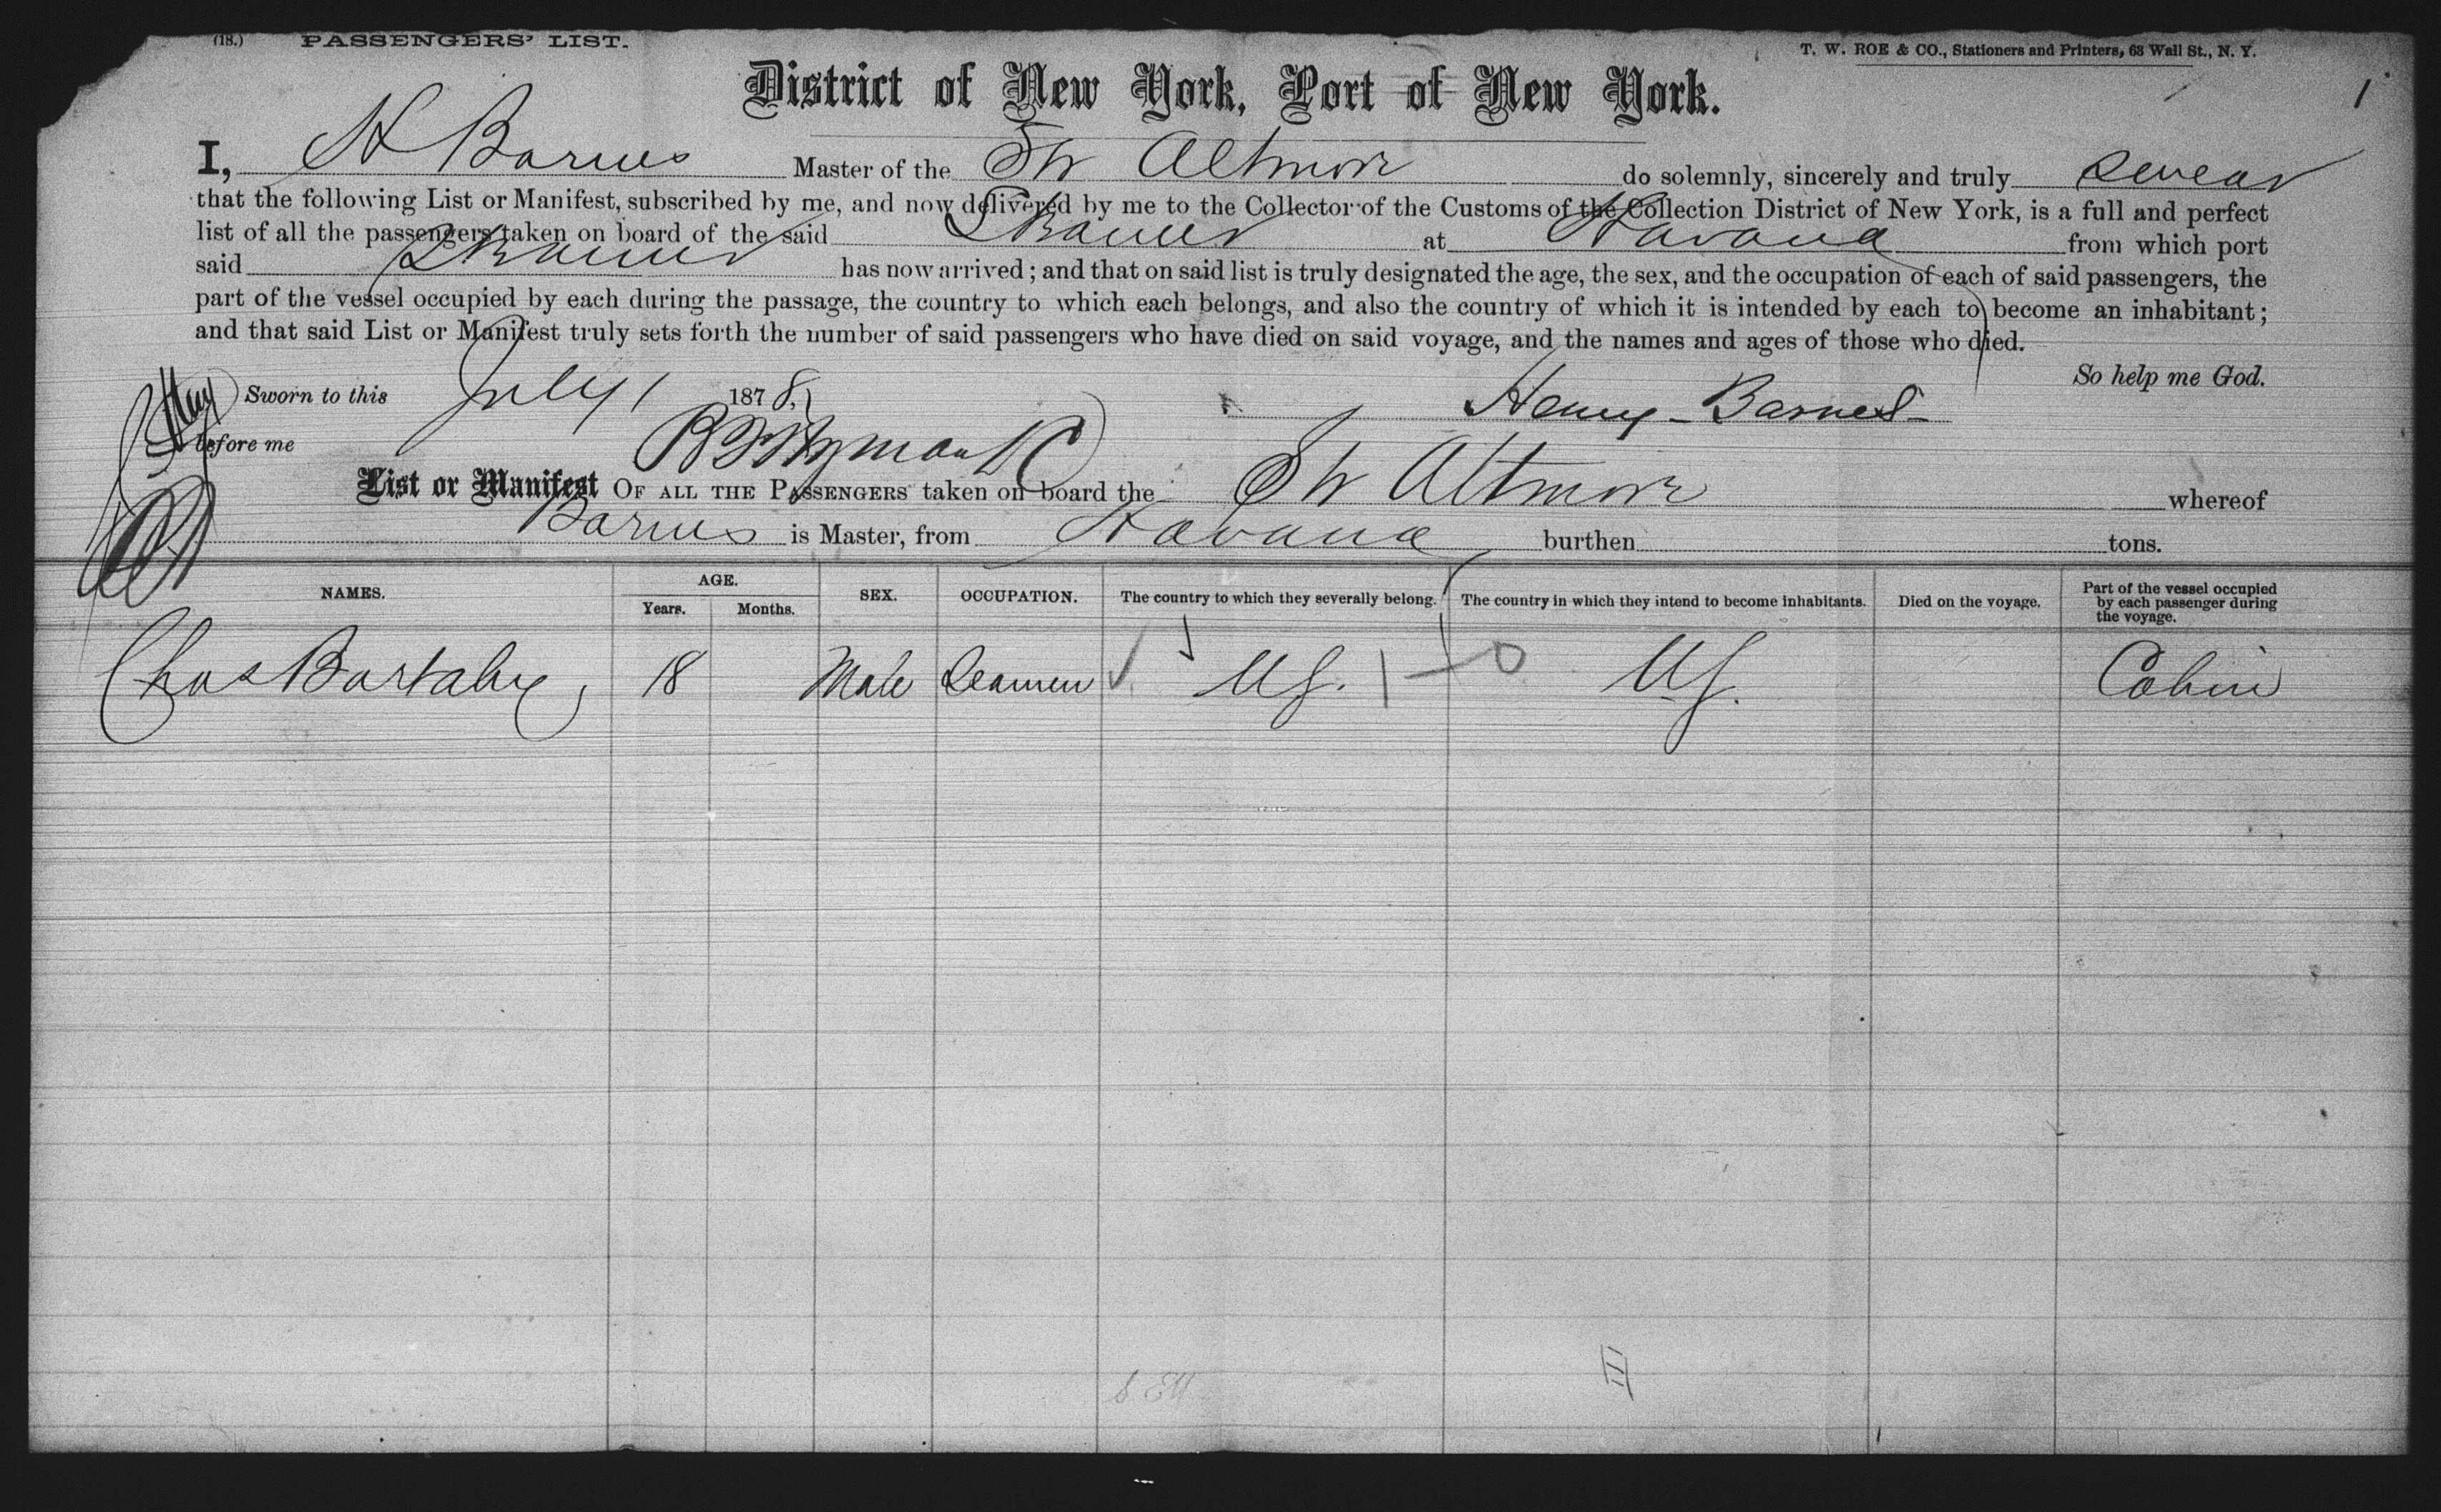 (18.) PASSENGERS' LIST.
T. W. ROE & CO., Stationers and Printers, 63 Wall St., N. Y.
1
District of New York, Port of New York.
I, H Barnes Master of the Str Altmore do solemnly, sincerely and truly swear
that the following List or Manifest, subscribed by me, and now delivered by me to the Collector of the Customs of the Collection District of New York, is a full and perfect
list of all the passengers taken on board of the said at Havana from which port
said has now arrived; and that on said list is truly designated the age, the sex, and the occupation of each of said passengers, the
part of the vessel occupied by each during the passage, the country to which each belongs, and also the country of which it is intended by each to become an inhabitant;
and that said List or Manifest truly sets forth the number of said passengers who have died on said voyage, and the names and ages of those who died.
So help me God.
Sworn to this July 1 1878, Henry Barnes
before me
List or Manifest OF ALL THE PASSENGERS taken on board the Str Altmore whereof
Barnes is Master, from Havana burthen tons.
NAMES. AGE. SEX. OCCUPATION. The country to which they severally belong. The country in which they intend to become inhabitants. Died on the voyage. Part of the vessel occupied by each passenger during the voyage.
Years. Months.
Chas Bartaby, 18 Male Seamen US. US. Cabin